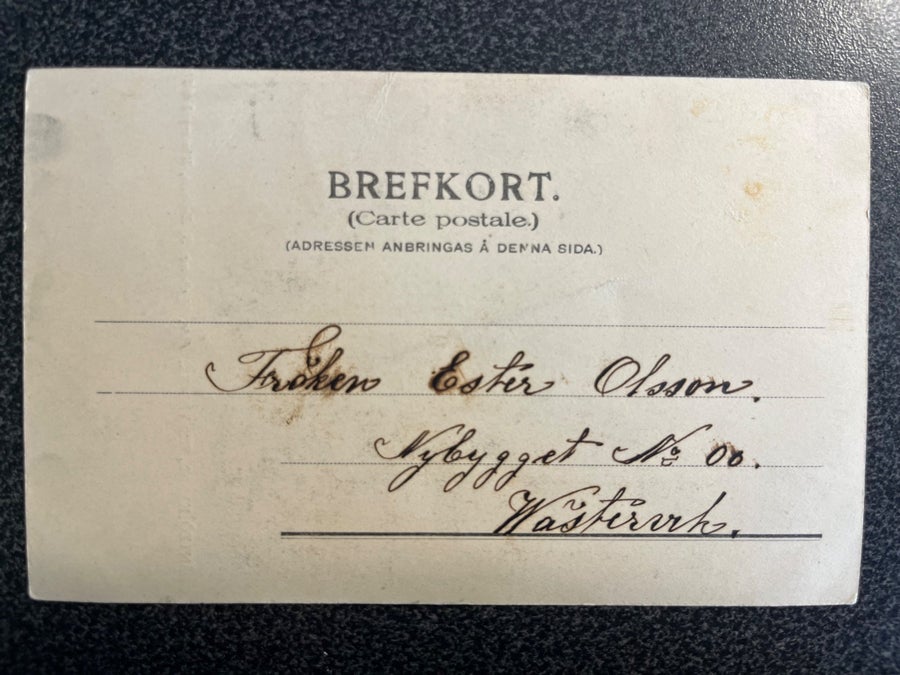 BREFKORT.
(Carte postale.)
(ADRESSEN ANBRINGAS Å DENNA SIDA.)
Fröken Ester Olsson.
Nybygget No 00.
Wästervik.